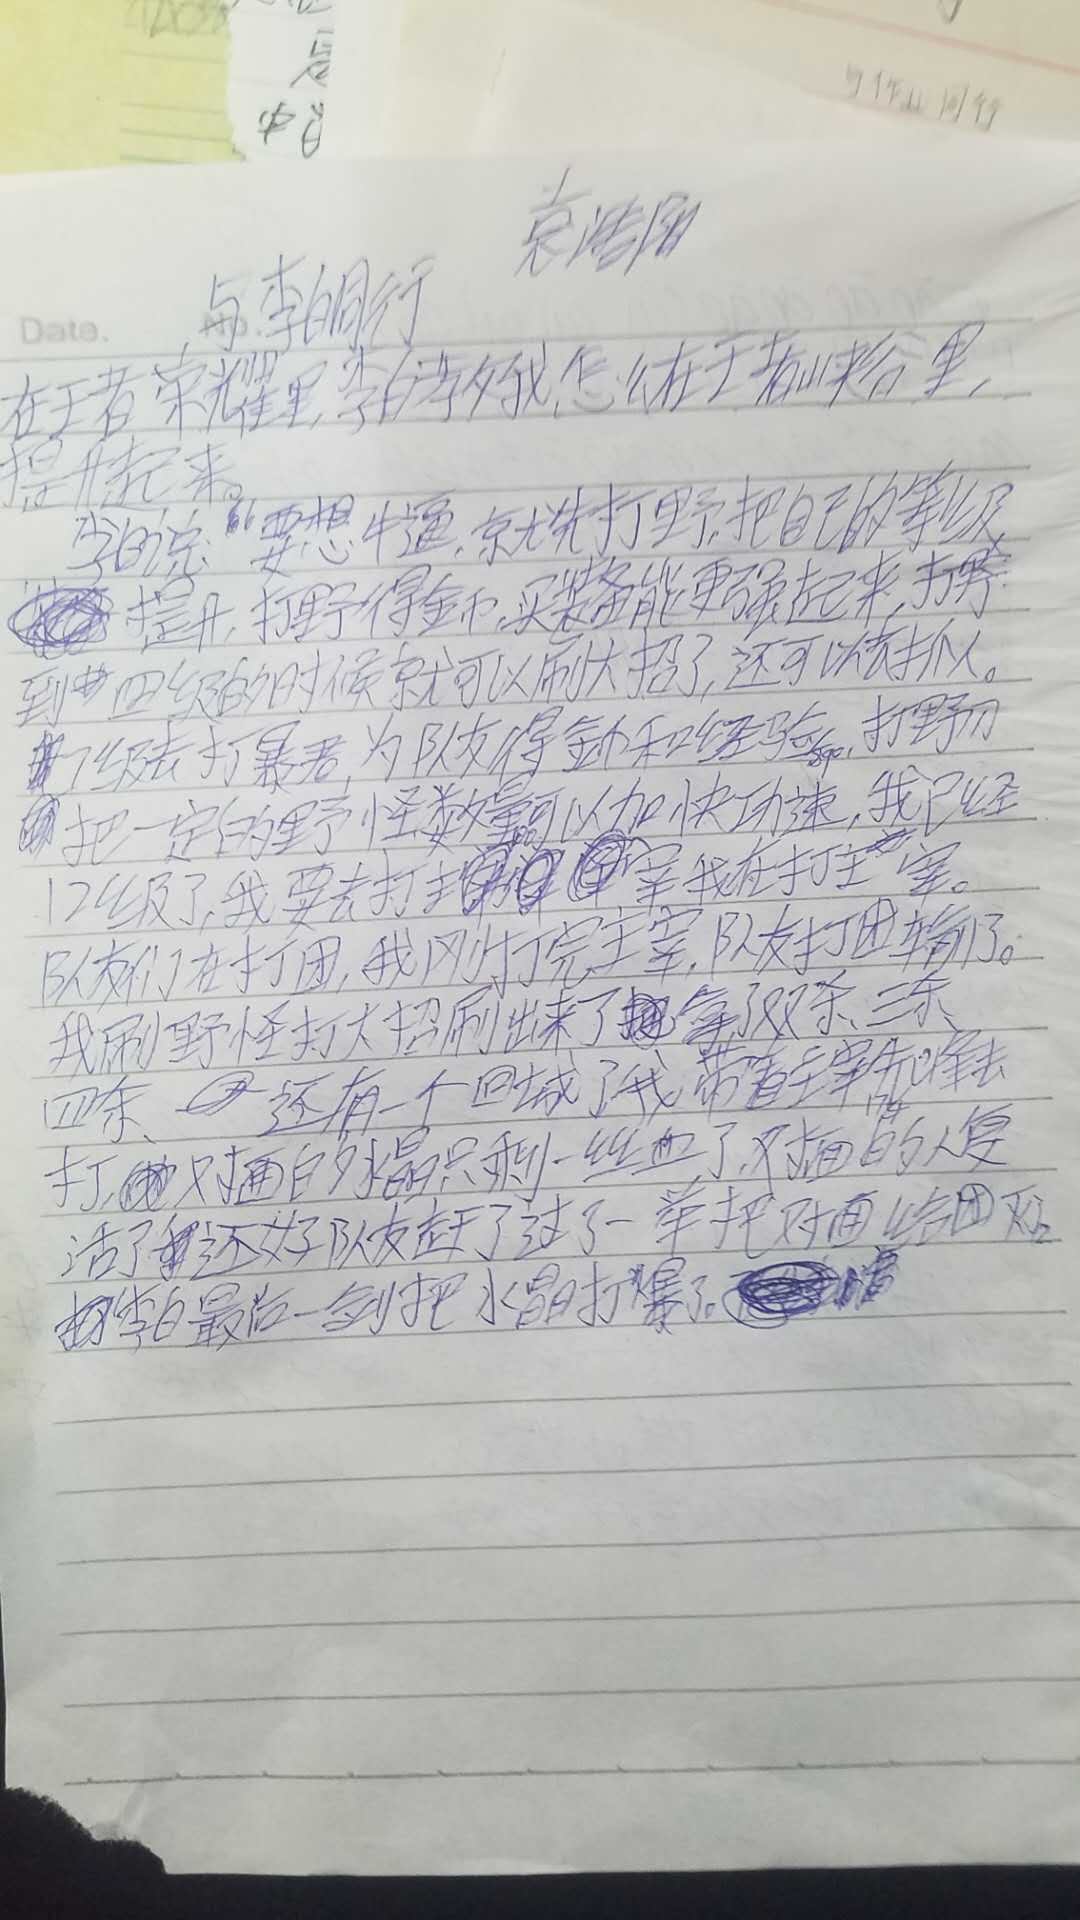 与李白同行
Date. No.
在王者荣耀里,李白教我,怎么在王者峡谷里,
提升起来。
李白说:“要想牛逼,就先打野,把自己的等级
提升,打野得金币,买装备能更强起来,打野
到四级的时候就可以刷大招了,还可以去抓人。
7级去打暴君,为队友得金币和经验,打野刀
把一定的野怪数量可以加快功速,我已经
12级了,我要去打主宰我在打主宰。
队友们在打团,我刚打完主宰,队友打团输了。
我刷野怪打大招刷出来了拿了双杀、三杀、
四杀、还有一个回城了我带着主宰先峰去
打,对面的水晶只剩一丝血了,对面的人复
活了还好队友赶了过了一举把对面给团灭
李白最后一剑把水晶打爆了。